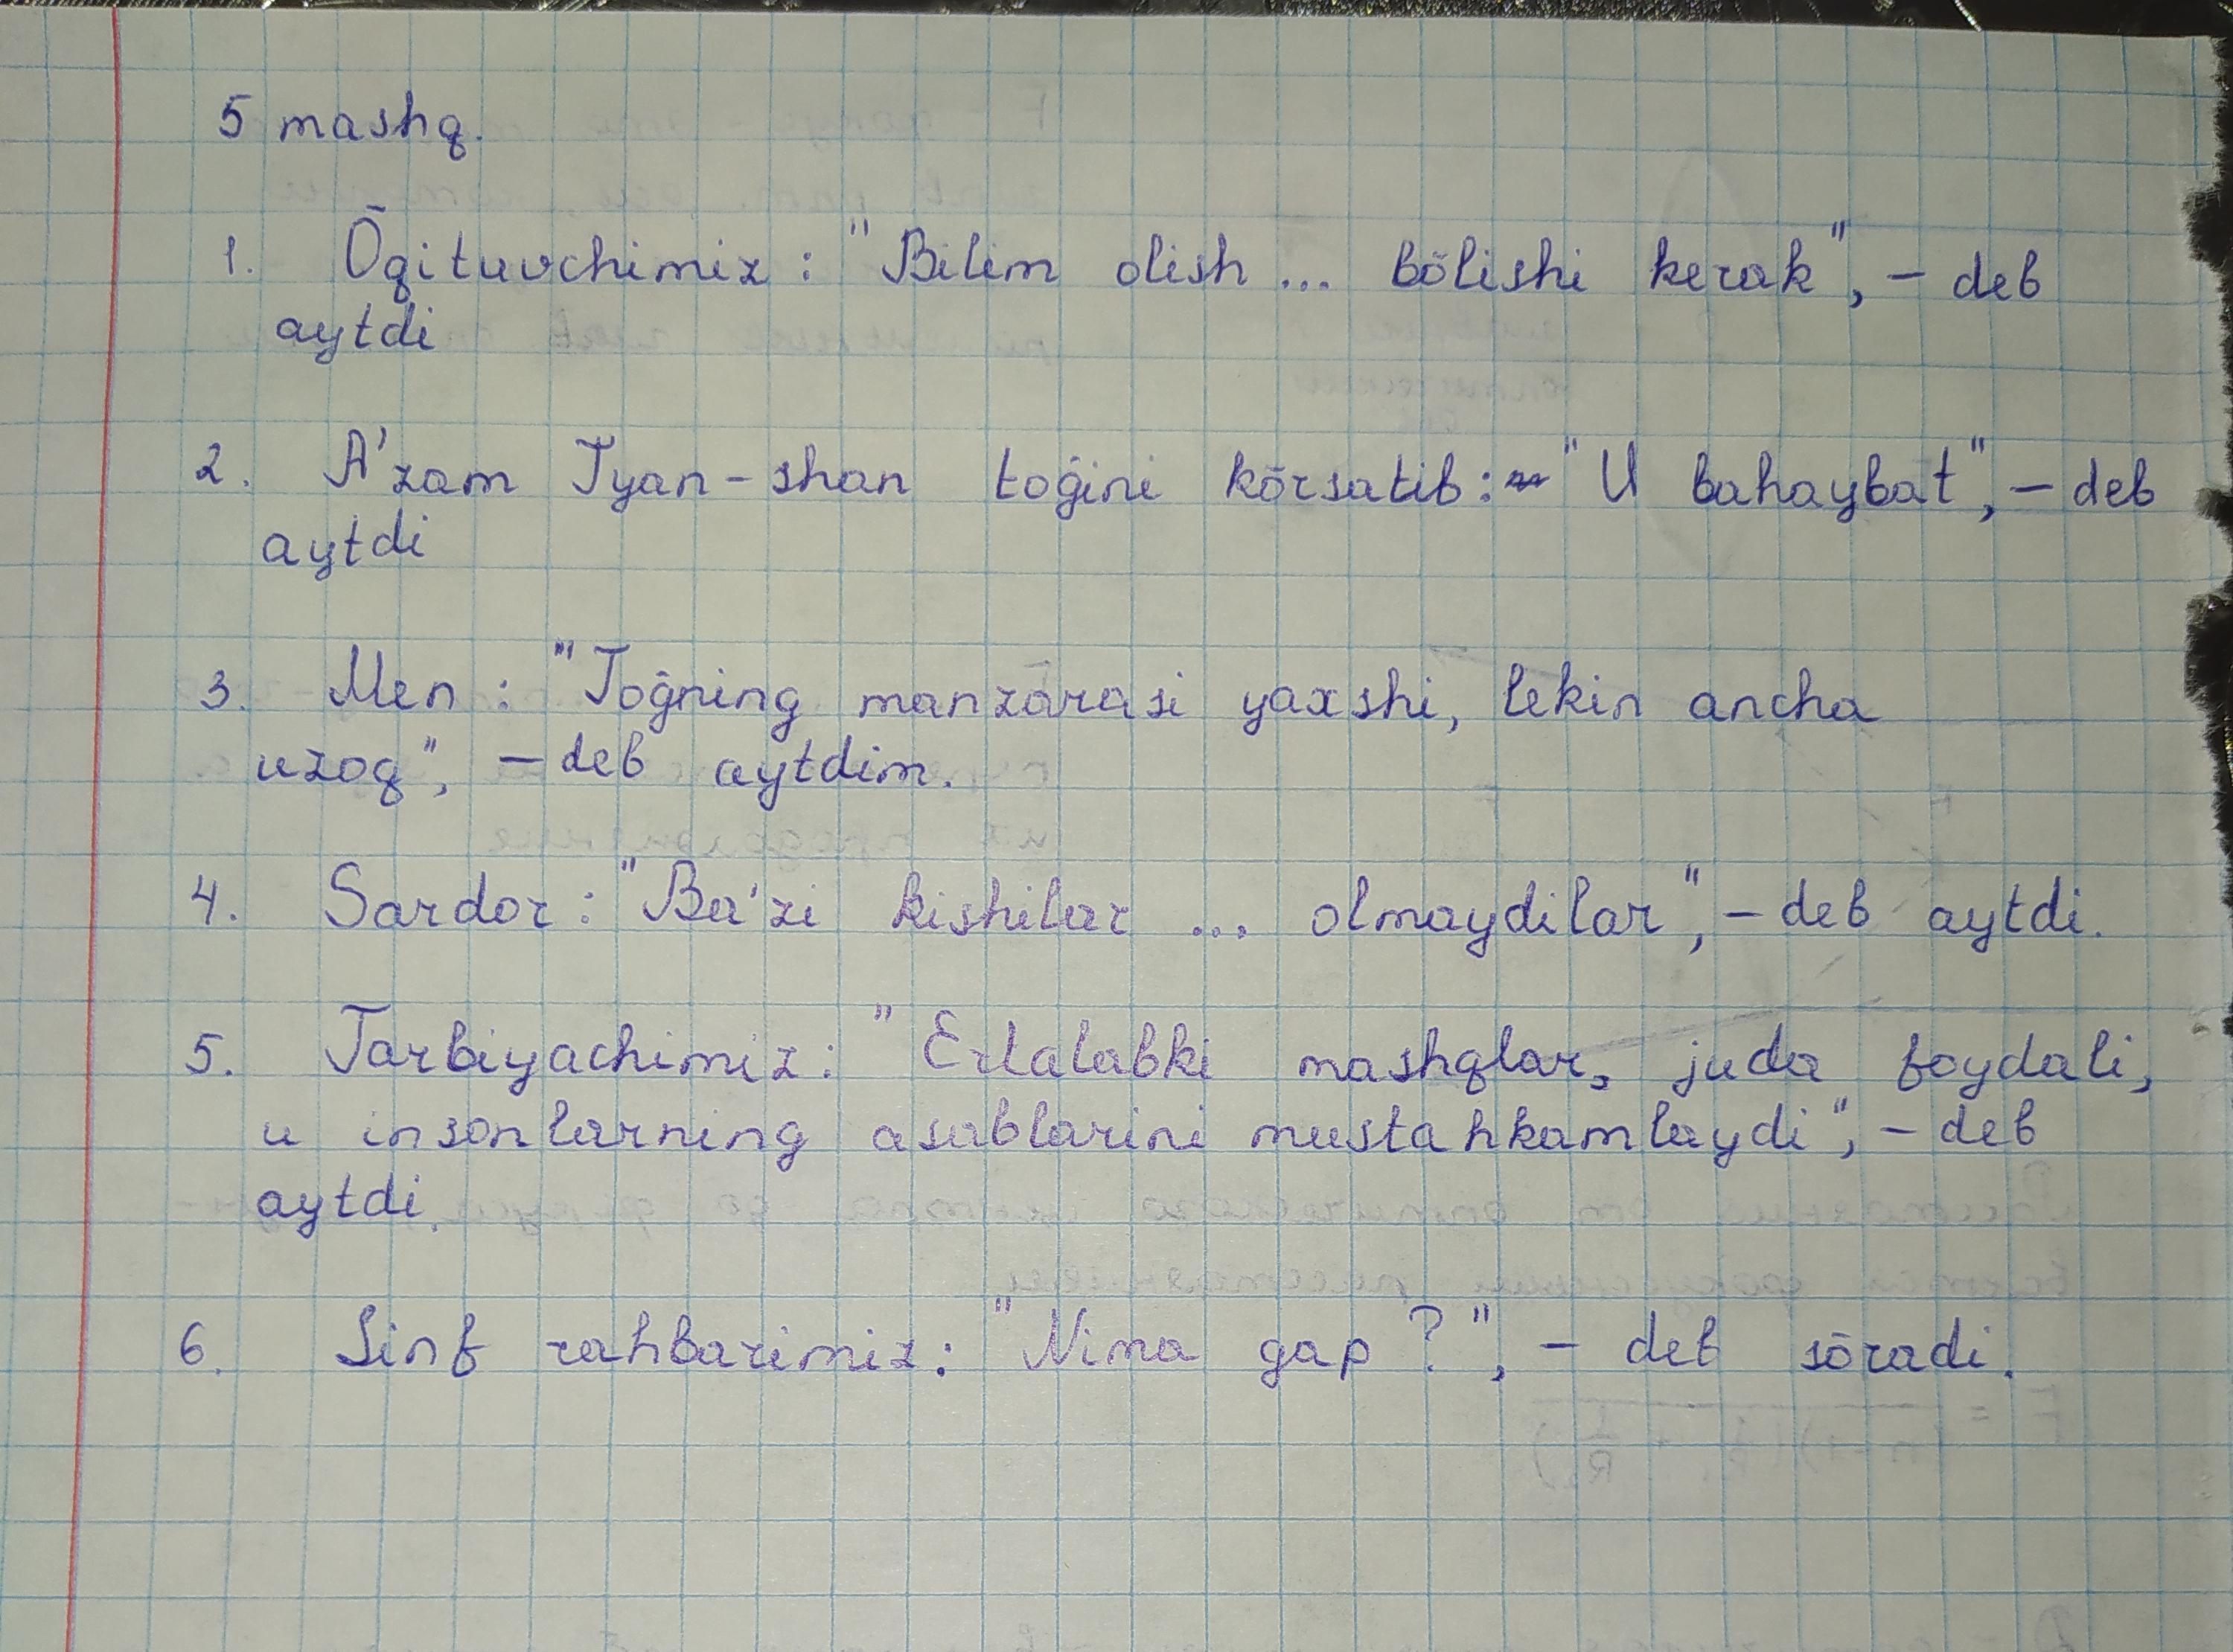 5 mashq.
1. Ōqituvchimiz: "Bilim olish ... bōlishi kerak", - deb
aytdi
2. A'zam Tyan-shan toḡini kōrsatib: "U bahaybat", - deb
aytdi
3. Men: "Toḡning manzarasi yaxshi, lekin ancha
uzoq", - deb aytdim.
4. Sardor: "Ba'zi kishilar ... olmaydilar", - deb aytdi.
5. Tarbiyachimiz: "Ertalabki mashqlar, juda foydali,
u insonlarning asablarini mustahkamlaydi", - deb
aytdi.
6. Sinf rahbarimiz: "Nima gap?", - deb sōradi.